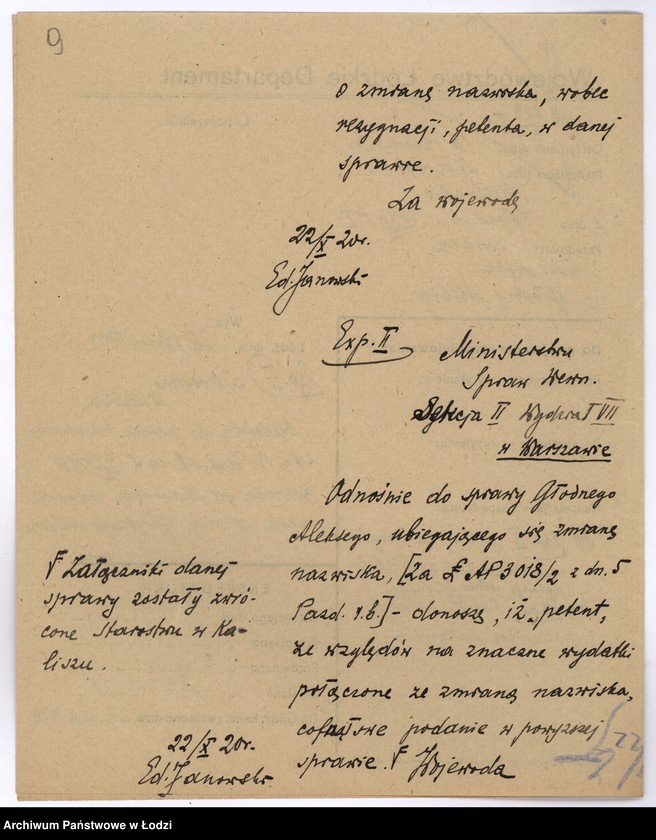 9
o zmianę nazwiska, wobec
rezygnacji, petenta, w danej
sprawie.
Za wojewodę
22/X 20r.
Ed. Janowski
Exp. II
Ministerstwu
Spraw Wewn.
Sekcja II Wydział VII
w Warszawie
Odnośnie do sprawy Głodnego
Aleksego, ubiegającego się zmianę
nazwiska, [za £ AP 3018/2 z dn. 5
Pazd. r.b.] - donoszę, iż petent,
ze względów na znaczne wydatki
połączone ze zmianą nazwiska,
cofnął swe podanie w powyższej
sprawie. √ Wojewoda
√ Załączniki danej
sprawy zostały zwró-
cone Starostwu w Ka-
liszu.
22/X 20r.
Ed. Janowski
Archiwum Państwowe w Łodzi